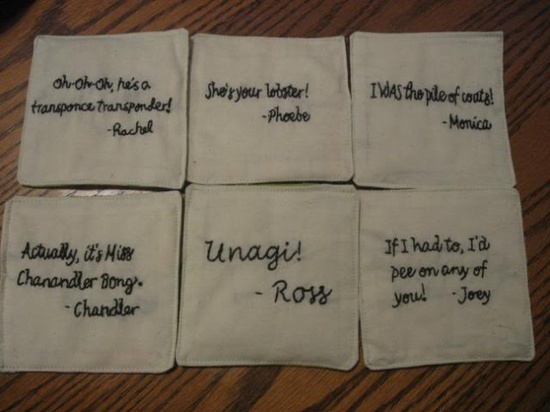 Oh-Oh-Oh, he's a
transponce transponder!
-Rachel
She's your lobster!
-Phoebe
I WAS the pile of coats!
-Monica
Actually, it's Miss
Chanandler Bong.
- Chandler
Unagi!
- Ross
If I had to, I'd
pee on any of
you! - Joey